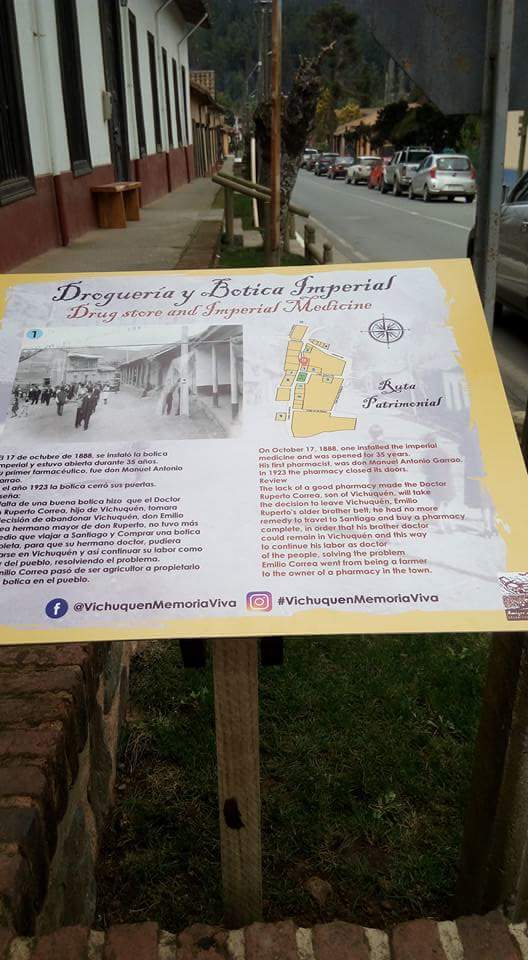 Droguería y Botica Imperial
Drug store and Imperial Medicine
1
Ruta
Patrimonial
17 de octubre de 1888, se instaló la botica
mperial y estuvo abierta durante 35 años.
primer farmacéutico, fue don Manuel Antonio
arrao.
el año 1923 la botica cerró sus puertas.
seña:
falta de una buena botica hizo que el Doctor
Ruperto Correa, hijo de Vichuquén, tomara
decisión de abandonar Vichuquén, don Emilio
rea hermano mayor de don Ruperto, no tuvo más
edio que viajar a Santiago y Comprar una botica
pleta, para que su hermano doctor, pudiera
arse en Vichuquén y así continuar su labor como
del pueblo, resolviendo el problema.
milio Correa pasó de ser agricultor a propietario
botica en el pueblo.
On October 17, 1888, one installed the imperial
medicine and was opened for 35 years.
His first pharmacist, was don Manuel Antonio Garrao.
in 1923 the pharmacy closed its doors.
Review
The lack of a good pharmacy made the Doctor
Ruperto Correa, son of Vichuquén, will take
the decision to leave Vichuquén, Emilio
Ruperto's older brother belt, he had no more
remedy to travel to Santiago and buy a pharmacy
complete, in order that his brother doctor
could remain in Vichuquén and this way
to continue his labor as doctor
of the people, solving the problem
Emilio Correa went from being a farmer
to the owner of a pharmacy in the town.
@VichuquenMemoriaViva
#VichuquenMemoriaViva